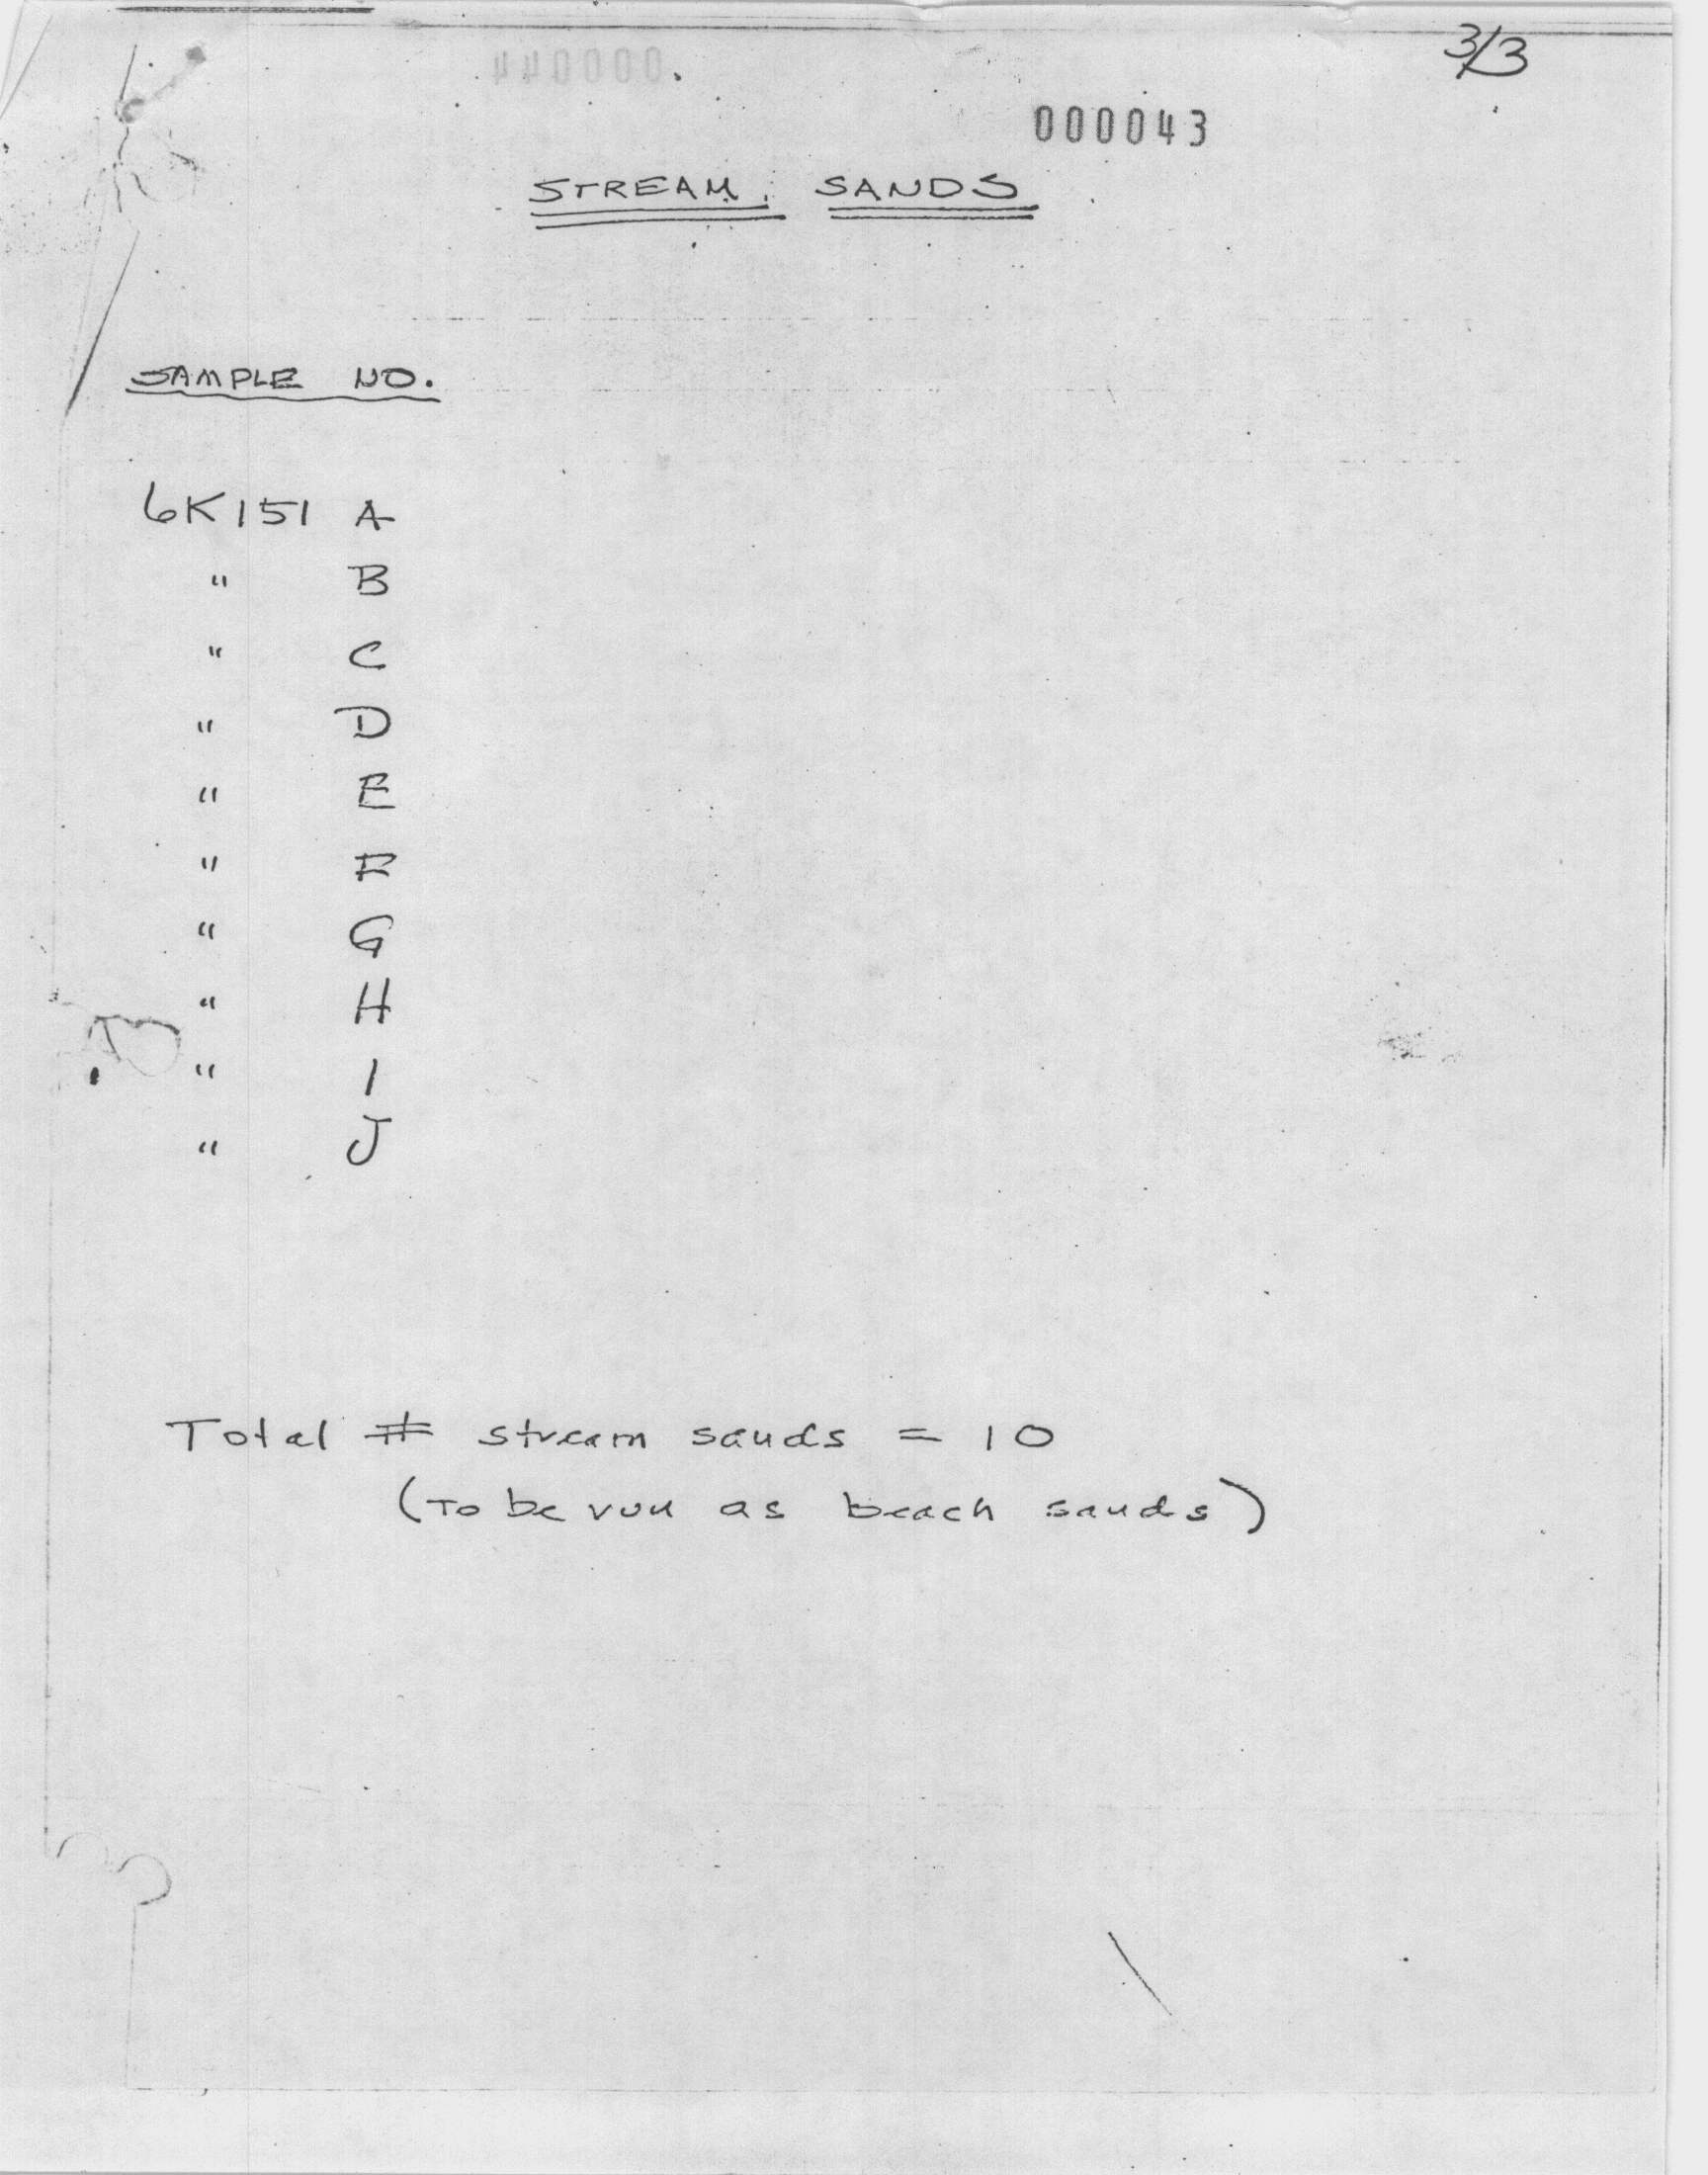 3/3
000043
STREAM SANDS
SAMPLE NO.
6K151 A
" B
" C
" D
" E
" F
" G
" H
" I
" J
Total # stream sands = 10
(To be run as beach sands)